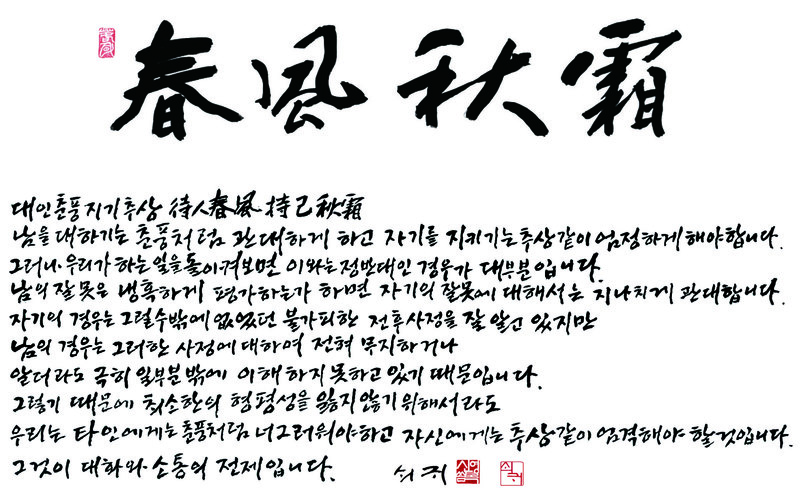 春風秋霜
대인춘풍지기추상 待人春風 持己秋霜
남을 대하기는 춘풍처럼 관대하게 하고 자기를 지키기는 추상같이 엄정하게 해야합니다.
그러나, 우리가 하는 일을 돌이켜보면 이와는 정반대인 경우가 대부분입니다.
남의 잘못은 냉혹하게 평가하는가 하면 자기의 잘못에 대해서는 지나치게 관대합니다.
자기의 경우는 그럴수밖에 없었던 불가피한 전후사정을 잘 알고 있지만
남의 경우는 그러한 사정에 대하여 전혀 무지하거나
알더라도 극히 일부분밖에 이해하지 못하고 있기 때문입니다.
그렇기 때문에 최소한의 형평성을 잃지 않기 위해서라도
우리는 타인에게는 춘풍처럼 너그러워야하고 자신에게는 추상같이 엄격해야 할것입니다.
그것이 대화와 소통의 전제입니다. 쇠귀